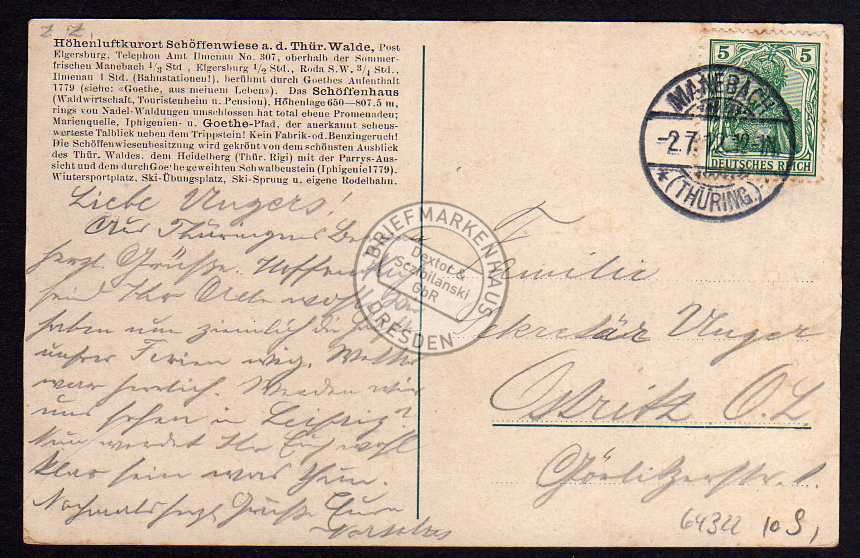 z. Z.
Höhenluftkurort Schöffenwiese a. d. Thür. Walde, Post
Elgersburg, Telephon Amt Ilmenau No. 307, oberhalb der Sommer-
frischen Manebach 1/3 Std., Elgersburg 1/2 Std., Roda S.W. 3/4 Std.,
Ilmenau 1 Std. (Bahnstationen!), berühmt durch Goethes Aufenthalt
1779 (siehe: «Goethe, aus meinem Leben»). Das Schöffenhaus
(Waldwirtschaft, Touristenheim u. Pension), Höhenlage 650—807.5 m,
rings von Nadel-Waldungen umschlossen hat total ebene Promenaden;
Marienquelle, Iphigenien- u. Goethe-Pfad, der anerkannt sehens-
werteste Talblick neben dem Trippstein! Kein Fabrik- od. Benzingeruch!
Die Schöffenwiesenbesitzung wird gekrönt von dem schönsten Ausblick
des Thür. Waldes, dem Heidelberg (Thür. Rigi) mit der Parrys-Aus-
sicht und dem durch Goethe geweihten Schwalbenstein (Iphigenie 1779).
Wintersportplatz, Ski-Übungsplatz, Ski-Sprung u. eigene Rodelbahn.
Liebe Ungers!
Aus Thüringens
herzl. Grüße. Hoffentlich
seid Ihr Alle wohl. Wir
haben nun ziemlich die
unsrer Ferien weg. Wetter
war herrlich. Werden wir
uns sehen in Leipzig?
Nun werdet Ihr Euch wohl
klar sein was thun.
Nochmals herzl. Grüße Eure
5 5
DEUTSCHES REICH
MANEBACH
-2.7.12
* (THÜRING.)
BRIEFMARKENHAUS
Dextor &
Sczibilanski
GbR
DRESDEN
Familie
Sekretär Unger
Ostritz O.L.
Görlitzerstr.
64322 10 S,